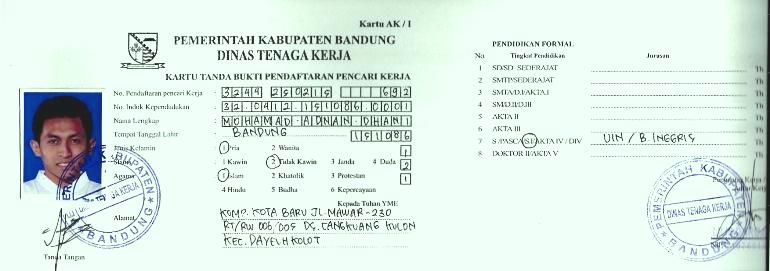 Kartu AK / I
PEMERINTAH KABUPATEN BANDUNG
DINAS TENAGA KERJA
KARTU TANDA BUKTI PENDAFTARAN PENCARI KERJA
No. Pendaftaran pencari Kerja : 3244 250215 692
No. Induk Kependudukan : 32.0412.151086.0001
Nama Lengkap : MOHAMAD ADNAN DHANI
Tempat Tanggal Lahir : BANDUNG 151086
Jenis Kelamin 1 Pria 2 Wanita 1
Status 1 Kawin 2 Tidak Kawin 3 Janda 4 Duda 2
Agama 1 Islam 2 Khatolik 3 Protestan 1
4 Hindu 5 Budha 6 Kepercayaan
Kepada Tuhan YME
Alamat KOMP. KOTA BARU JL. MAWAR-230
RT/RW 006/005 DS. CANGKUANG KULON
KEC. DAYEUH KOLOT
Tanda Tangan
PEMERINTAH KABUPATEN
DINAS TENAGA KERJA
BANDUNG
PENDIDIKAN FORMAL
No. Tingkat Pendidikan Jurusan
1 SD/SD SEDERAJAT Th
2 SMTP/SEDERAJAT Th
3 SMTA/D.I/AKTA I Th
4 SM/D.II/D.III Th
5 AKTA II Th
6 AKTA III Th
7 S /PASCA/S.I/AKTA IV / DIV UIN / B. INGGRIS Th
8 DOKTOR II/AKTA V Th
PEMERINTAH KABUPATEN
DINAS TENAGA KERJA
BANDUNG